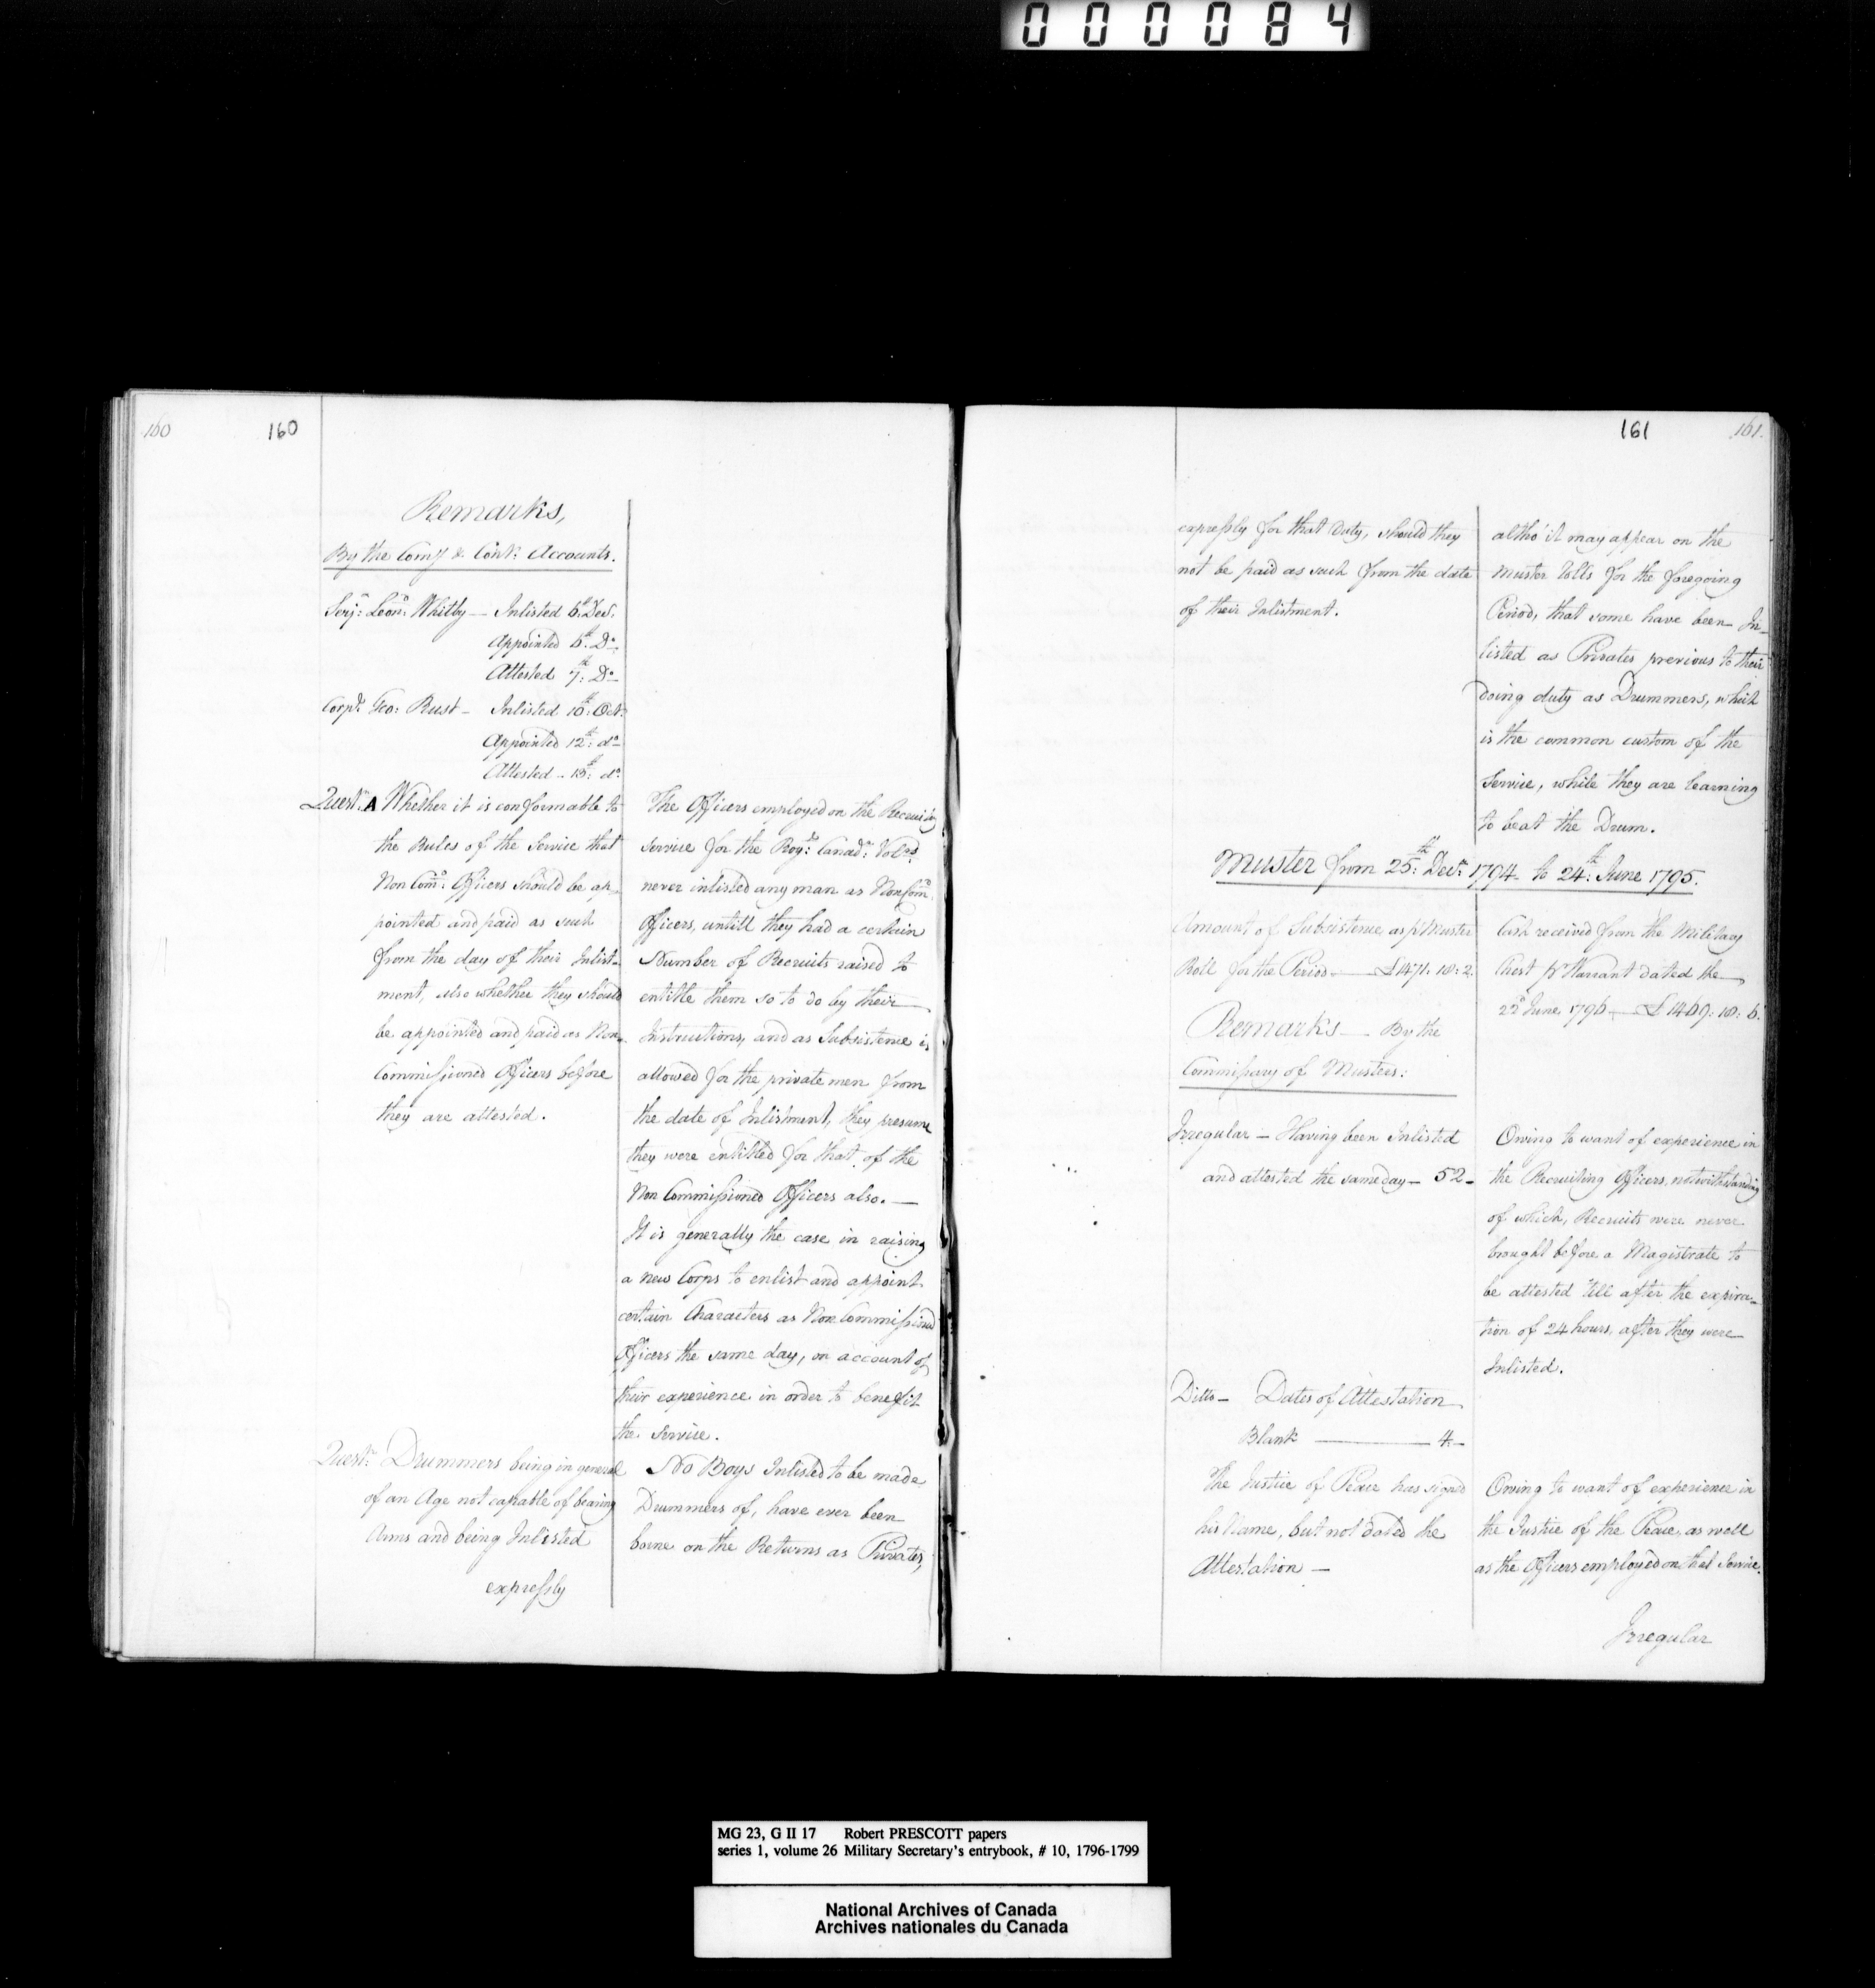 000084
160
160
Remarks,
By the Comy & Contr: Accounts.
Serj: Leond: Whitby — Inlisted 6th Decr.
Appointed 6th: Do
Attested 7th: Do
Corpl: Geo: Rust — Inlisted 10th: Octr:
Appointed 12th: do
Attested — 15th: do
Questn: A Whether it is conformable to
the Rules of the Service that
Non Comd: Officers should be ap-
pointed and paid as such
from the day of their Inlist-
ment, also whether they should
be appointed and paid as Non-
Commissioned Officers before
they are attested.
The Officers employed on the Recruiting
Service for the Roy: Canadn: Volrs
never inlisted any man as Non Comd
Officers, untill they had a certain
Number of Recruits raised to
entitle them so to do by their
Instructions, and as Subsistence is
allowed for the private men from
the date of Inlistment, they presume
they were entitled for that of the
Non Commissioned Officers also. —
It is generally the case in raising
a new Corps to enlist and appoint
certain Characters as Non Commissioned
Officers the same day, on account of
their experience in order to benefit
the Service.
Questn: Drummers being in general
of an Age not capable of bearing
Arms and being Inlisted
expressly
No Boys Inlisted to be made
Drummers of, have ever been
borne on the Returns as Privates,
161
161.
expressly for that Duty, should they
not be paid as such from the date
of their Inlistment.
altho' it may appear on the
Muster Rolls for the foregoing
Period, that some have been In-
listed as Privates previous to their
doing duty as Drummers, which
is the common custom of the
Service, while they are learning
to beat the Drum.
Muster from 25th: Decr: 1794 to 24th: June 1795.
Amount of Subsistence as pr Muster
Roll for the Period — £1471: 18: 2
Cash received from the Military
Chest pr Warrant dated the
22d June 1796 — £1469: 18: 6.
Remarks — By the
Commissary of Musters:
Irregular — Having been Inlisted
and attested the same day — 52 —
Owing to want of experience in
the Recruiting Officers, notwithstanding
of which, Recruits were never
brought before a Magistrate to
be attested 'till after the expira-
tion of 24 hours, after they were
Inlisted.
Ditto — Dates of Attestation
Blank — 4 —
The Justice of Peace has signed
his Name, but not dated the
Attestation —
Owing to want of experience in
the Justice of the Peace, as well
as the Officers employed on that Service.
Irregular
MG 23, G II 17 Robert PRESCOTT papers
series 1, volume 26 Military Secretary's entrybook, # 10, 1796-1799
National Archives of Canada
Archives nationales du Canada